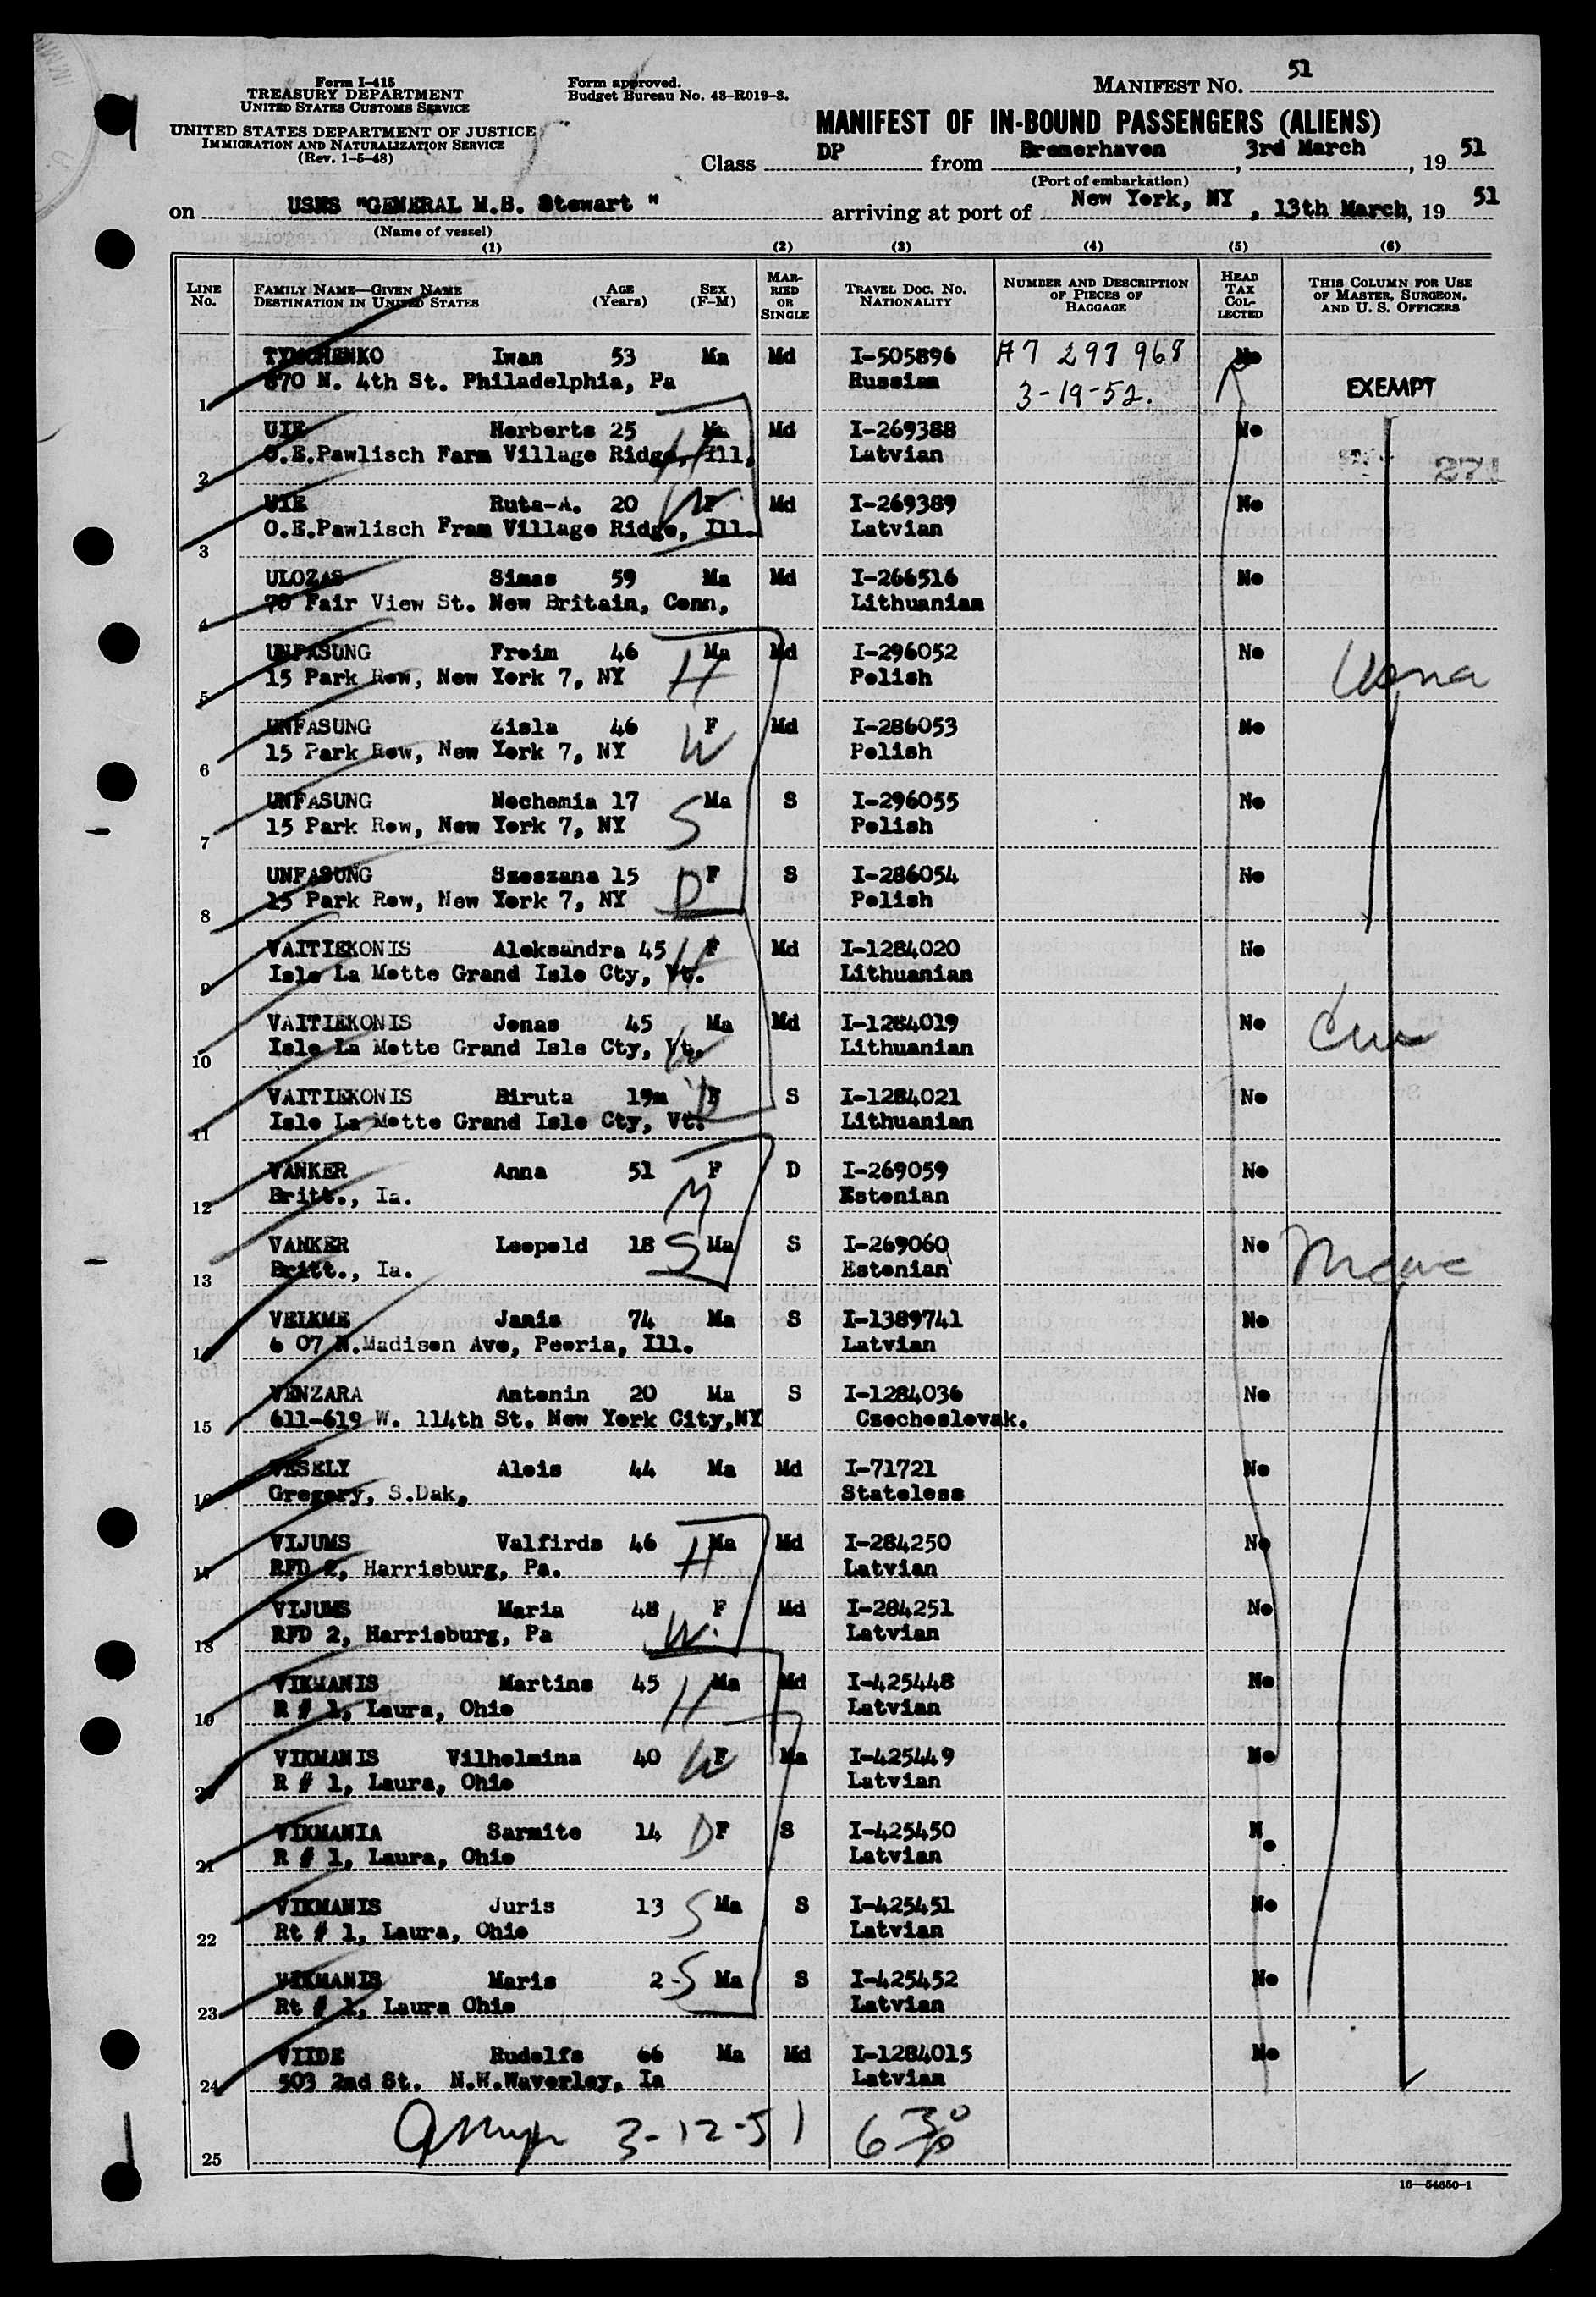 Form I-415
TREASURY DEPARTMENT
UNITED STATES CUSTOMS SERVICE
UNITED STATES DEPARTMENT OF JUSTICE
IMMIGRATION AND NATURALIZATION SERVICE
(Rev. 1-5-48)
Form approved.
Budget Bureau No. 43-R019-3.
MANIFEST NO. 51
MANIFEST OF IN-BOUND PASSENGERS (ALIENS)
Class DP from Bremerhaven, 3rd March, 19 51
(Port of embarkation)
on USNS "GENERAL M.B. Stewart" arriving at port of New York, NY, 13th March, 19 51
(Name of vessel)
(1) (2) (3) (4) (5) (6)
LINE No. FAMILY NAME—GIVEN NAME DESTINATION IN UNITED STATES AGE (Years) SEX (F-M) MARRIED OR SINGLE TRAVEL DOC. NO. NATIONALITY NUMBER AND DESCRIPTION OF PIECES OF BAGGAGE HEAD TAX COLLECTED THIS COLUMN FOR USE OF MASTER, SURGEON, AND U. S. OFFICERS
TYMCHENKO Iwan 53 Ma Md I-505896 A7 297 968 No
1 870 N. 4th St. Philadelphia, Pa Russian 3-19-52. EXEMPT
UIE Herberts 25 Ma Md I-269388 No
2 O.E.Pawlisch Farm Village Ridge, Ill. H Latvian 271
UIE Ruta-A. 20 F W Md I-269389 No
3 O.E.Pawlisch Fram Village Ridge, Ill. Latvian
ULOZAS Simas 59 Ma Md I-266516 No
4 70 Fair View St. New Britain, Conn, Lithuanian
UNFASUNG Froim 46 Ma Md I-296052 No
5 15 Park Row, New York 7, NY H Polish
UNFASUNG Zisla 46 F Md I-286053 No
6 15 Park Row, New York 7, NY W Polish
UNFASUNG Nechemia 17 Ma S I-296055 No
7 15 Park Row, New York 7, NY S Polish
UNFASUNG Szoszana 15 F S I-286054 No
8 15 Park Row, New York 7, NY D Polish
VAITIEKONIS Aleksandra 45 H F Md I-1284020 No
9 Isle La Motte Grand Isle Cty, Vt. Lithuanian
VAITIEKONIS Jonas 45 Ma Md I-1284019 No
10 Isle La Motte Grand Isle Cty, Vt. W Lithuanian
VAITIEKONIS Biruta 19m D F S I-1284021 No
11 Isle La Motte Grand Isle Cty, Vt. Lithuanian
VANKER Anna 51 F D I-269059 No
12 Britt., Ia. M Estonian
VANKER Leopold 18 S Ma S I-269060 No
13 Britt., Ia. Estonian
VEIKME Janis 74 Ma S I-1389741 No
14 6 07 N.Madison Ave, Peoria, Ill. Latvian
VENZARA Antonin 20 Ma S I-1284036 No
15 611-619 W. 114th St. New York City,NY Czechoslovak.
VESELY Alois 44 Ma Md I-71721 No
16 Gregory, S.Dak, Stateless
VIJUMS Valfirds 46 Ma Md I-284250 No
17 RFD 2, Harrisburg, Pa. H Latvian
VIJUMS Maria 48 F Md I-284251 No
18 RFD 2, Harrisburg, Pa W. Latvian
VIKMANIS Martins 45 Ma Md I-425448 No
19 R # 1, Laura, Ohio H Latvian
VIKMANIS Vilhelmina 40 W F Ma I-425449 No
20 R # 1, Laura, Ohio Latvian
VIKMANIA Sarmite 14 D F S I-425450 No
21 R # 1, Laura, Ohio Latvian
VIKMANIS Juris 13 S Ma S I-425451 No
22 Rt # 1, Laura, Ohio Latvian
VIKMANIS Maris 2 S Ma S I-425452 No
23 Rt # 1, Laura Ohio Latvian
VIIDE Rudolfs 66 Ma Md I-1284015 No
24 503 2nd St. N.W.Waverley, Ia Latvian
25 3-12-51
16—54650-1